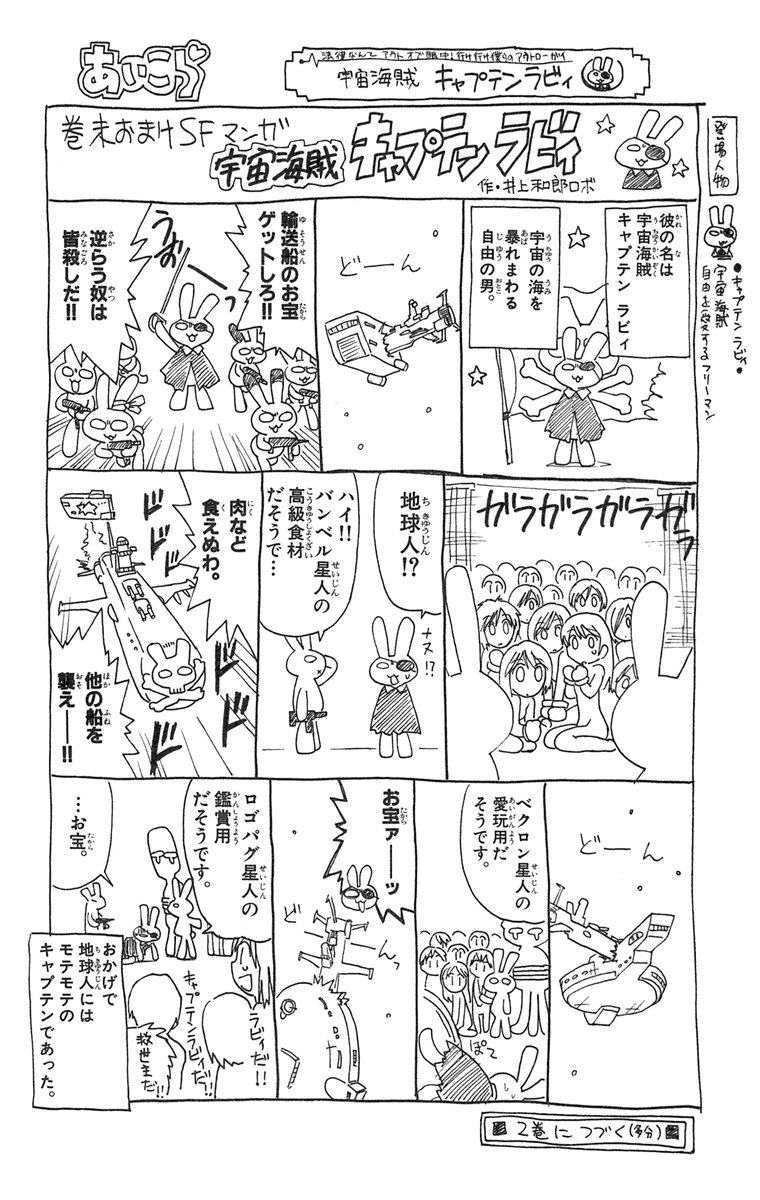 あいこら
法律なんて アウト オブ 眼中! 行け行け僕らのアウトローガイ
宇宙海賊 キャプテンラビィ
巻末おまけSFマンガ
宇宙海賊 キャプテン ラビィ
作・井上和郎ロボ
登場人物
●キャプテンラビィ●
宇宙海賊
自由を愛するフリーマン
彼の名は
宇宙海賊
キャプテン ラビィ
宇宙の海を
暴れまわる
自由の男。
どーん
輸送船のお宝
ゲットしろ!!
うおーー
逆らう奴は
皆殺しだ!!
ガラガラガラガラ
地球人!?
ナヌ!?
ハイ!!
バンベル星人の
高級食材
だそうで…
肉など
食えぬわ。
ドドド
ドドド
他の船を
襲えーー!!
どーん
ベクロン星人の
愛玩用だ
そうです。
ぽて
お宝ァーーッ
どーんっ
ロゴパグ星人の
鑑賞用
だそうです。
…お宝。
キャプテンラビィだ!!
ラビィだ!!
救世主だ!!
おかげで
地球人には
モテモテの
キャプテンであった。
2巻に つづく(多分)